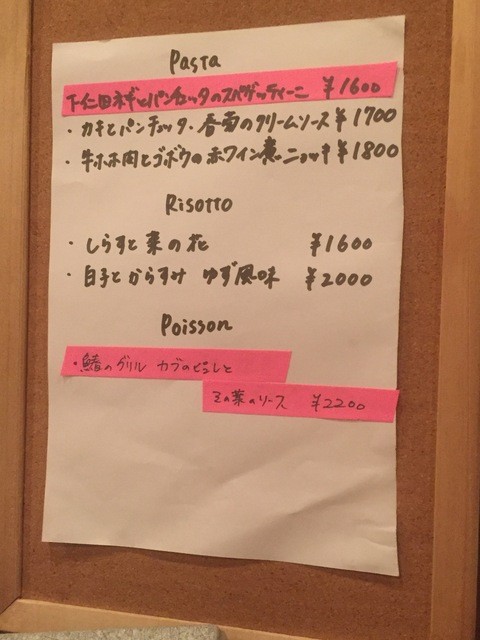 Pasta
下仁田ネギとパンチェッタのスパゲッティーニ ¥1600
・カキとパンチェッタ・春菊のクリームソース ¥1700
・牛ホホ肉とゴボウの赤ワイン煮ニョッキ ¥1800
Risotto
・しらすと菜の花 ¥1600
・白子とからすみ ゆず風味 ¥2000
Poisson
・鰆のグリル カブのピュレと
その葉のソース ¥2200